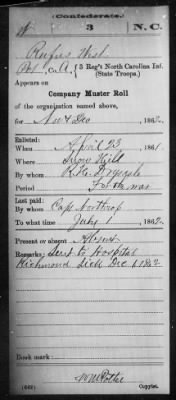 (Confederate.)
W 3 N.C.
Rufus West
Pvt, Co. A, 3 Reg't North Carolina Inf.
(State Troops.)
Appears on
Company Muster Roll
of the organization named above,
for Nov & Dec, 1862
Enlisted:
When April 23, 1861
Where Snow Hill
By whom
Period For the war
Last paid:
By whom Capt Northrop
To what time July 1, 1862
Present or absent Absent
Remarks: Sent to Hospital
Richmond Sick Dec 1862
Book mark:
(642) Copyist.